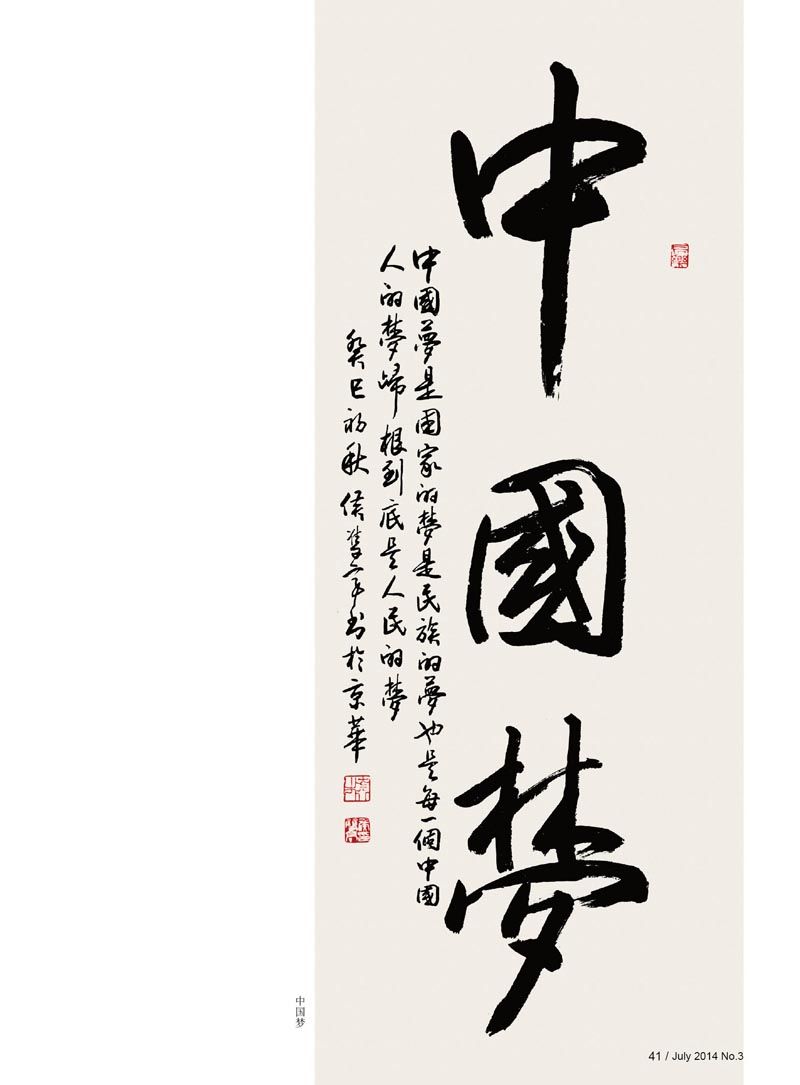 中國梦
中國夢是国家的梦是民族的夢也是每一個中國
人的梦歸根到底是人民的梦
癸巳初秋侯隽年书於京華
中国梦
41 / July 2014 No.3